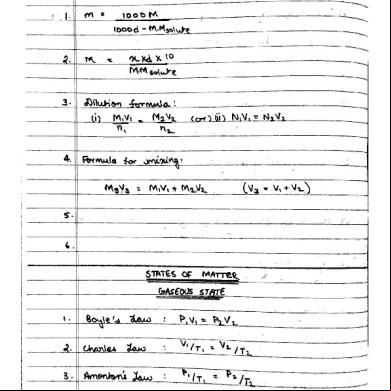 1. m = 1000M / 1000d - M.Msolute
2. M = x x d x 10 / MM solute
3. Dilution formula:
(i) M₁V₁/n₁ = M₂V₂/n₂ (or) (ii) N₁V₁ = N₂V₂
4. Formula for mixing:
M₃V₃ = M₁V₁ + M₂V₂ (V₃ = V₁ + V₂)
5.
6.
STATES OF MATTER
GASEOUS STATE
1. Boyle's Law : P₁V₁ = P₂V₂
2. Charles Law : V₁/T₁ = V₂/T₂
3. Amonton's Law : P₁/T₁ = P₂/T₂